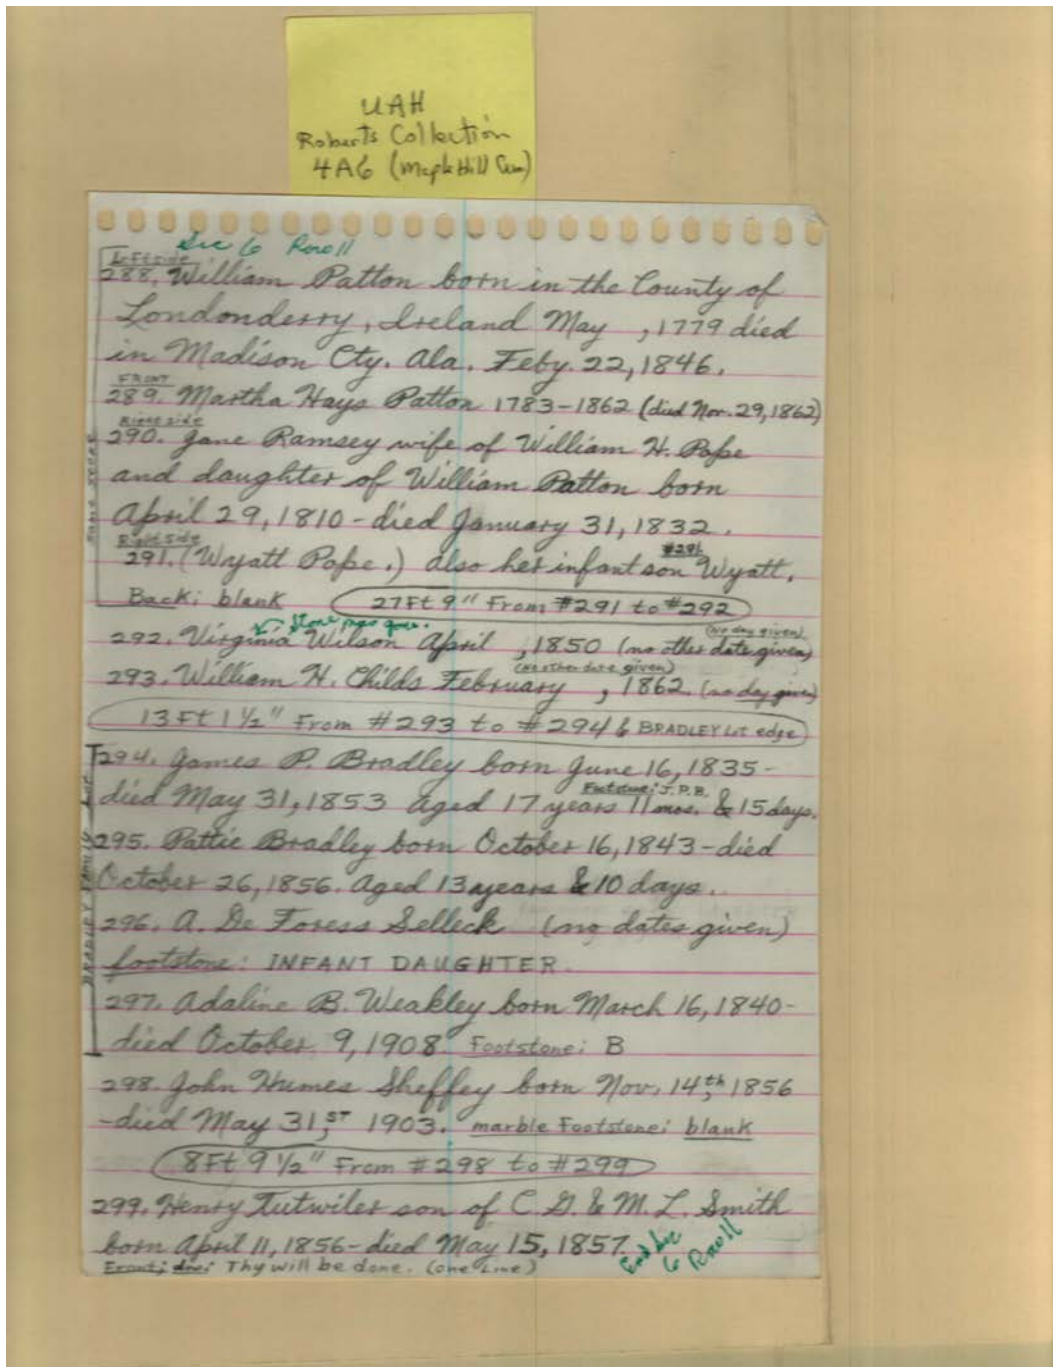 UAH
Roberts Collection
4A6 (Maple Hill Cem)
Sec 6 Row 11
Left side
288. William Patton born in the County of
Londonderry, Ireland May , 1779 died
in Madison Cty. Ala. Feby. 22, 1846.
FRONT
289. Martha Hays Patton 1783-1862 (died Nov. 29, 1862)
Right side
290. Jane Ramsey wife of William H. Pope
and daughter of William Patton born
April 29, 1810 - died January 31, 1832.
Right side
#291
291. (Wyatt Pope.) also her infant son Wyatt.
Back: blank 27Ft 9" From #291 to #292
Stone now gone.
(no day given)
292. Virginia Wilson April , 1850 (no other date given)
(no other date given)
293. William H. Childs February , 1862. (no day given)
13Ft 1 1/2" From #293 to #294 & BRADLEY Lot edge
294. James P. Bradley born June 16, 1835-
Footstone: J.P.B.
died May 31, 1853 aged 17 years 11 mos. & 15 days.
295. Pattie Bradley born October 16, 1843-died
October 26, 1856. Aged 13 years & 10 days.
296. A. De Foress Selleck (no dates given)
footstone: INFANT DAUGHTER.
297. Adaline B. Weakley born March 16, 1840-
died October 9, 1908. Footstone: B
BRADLEY FAMILY LOT
298. John Humes Sheffey born Nov. 14,th 1856
-died May 31,ST 1903. marble Footstone: blank
8Ft 9 1/2" From #298 to #299
299. Henry Tutwiler son of C. G. & M. L. Smith
born April 11, 1856-died May 15, 1857.
Front: Thy will be done. (One Line)
End Sec
6 Row 11